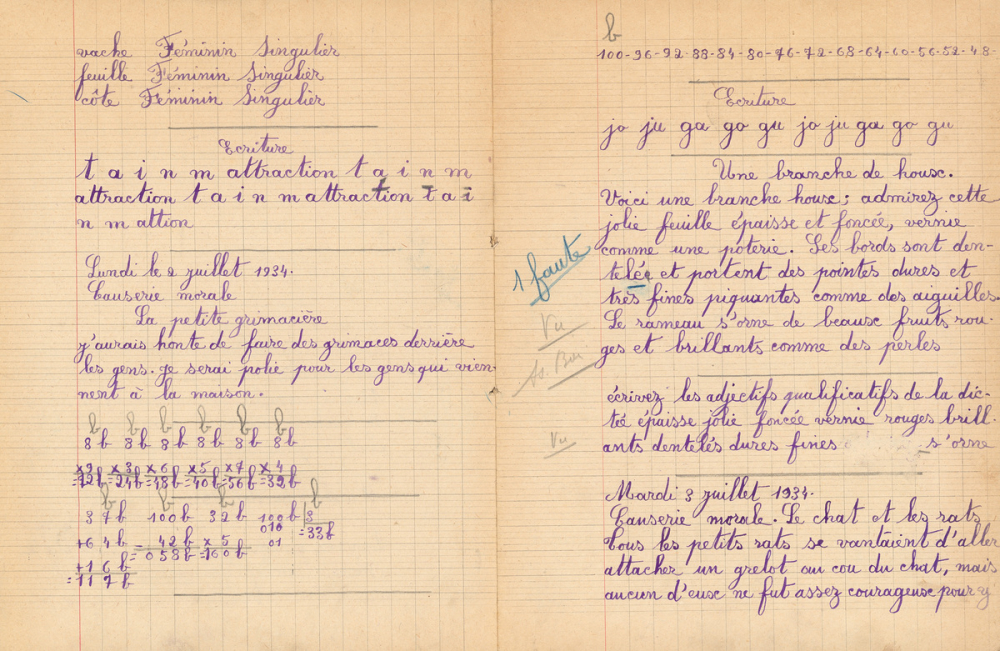 vache Féminin Singulier
feuille Féminin Singulier
côte Féminin Singulier
Ecriture
t a i n m attraction t a i n m
attraction t a i n m attraction t a i
n m attion
Lundi le 2 juillet 1934.
Causerie morale
La petite grimacière
j'aurais honte de faire des grimaces derrière
les gens. Je serai polie pour les gens qui vien-
nent à la maison.
b b b b b b
8b 8b 8b 8b 8b 8b
×9 ×3 ×6 ×5 ×7 ×4
=72b =24b =48b =40b =56b =32b
b b b b
37b 100b 32b 100b 3
+64b - 42b ×5 010 =33b
=058b =160b 01
+16b
=117b
b
100-96-92-88-84-80-76-72-68-64-60-56-52-48-
Ecriture
jo ju ga go gu jo ju ga go gu
Une branche de houx.
Voici une branche houx; admirez cette
jolie feuille épaisse et foncée, vernie
comme une poterie. Ses bords sont den-
telée et portent des pointes dures et
1 faute
très fines piquantes comme des aiguilles.
Vu
Le rameau s'orne de beaux fruits rou-
ges et brillants comme des perles
As. Bien
écrivez les adjectifs qualificatifs de la dic-
tée épaisse jolie foncée vernie rouges brill-
Vu
ants dentelés dures fines s'orne
Mardi 3 juillet 1934.
Causerie morale. Le chat et les rats
Tous les petits rats se vantaient d'aller
attacher un grelot au cou du chat, mais
aucun d'eux ne fut assez courageux pour y